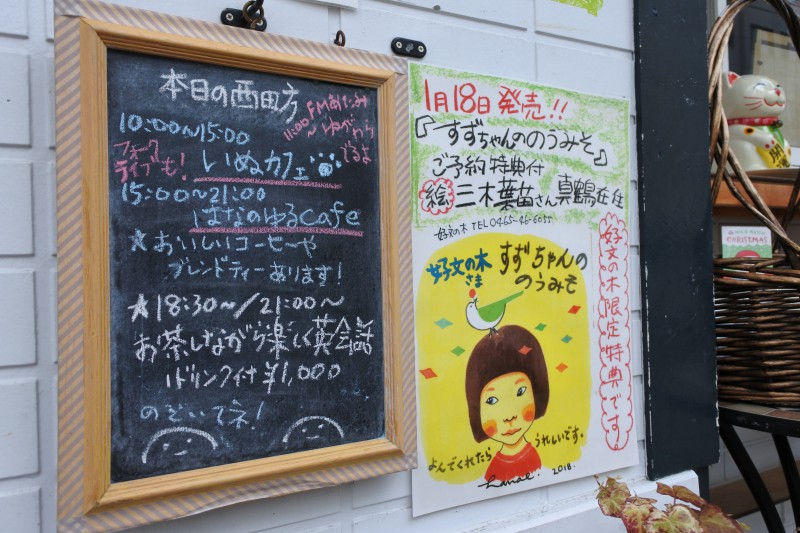 本日の西田方
11:00 FMあたみ
～ゆがわら
でるよ
10:00～15:00
フォーク
ライブも!
いぬカフェ
15:00～21:00
はなのゆるcafe
★おいしいコーヒーや
ブレンドティーあります!
★18:30～/21:00～
お茶しながら楽しく英会話
1ドリンク付¥1,000
のぞいてネ!
1月18日発売!!
『すずちゃんののうみそ』
ご予約特典付
絵 三木葉苗さん 真鶴在住
好文の木 TEL 0465-46-6055
好文の木限定特典です
好文の木
さま
すずちゃんの
のうみそ
よんでくれたら うれしいです。
Hanae. 2018.
CHRISTMAS